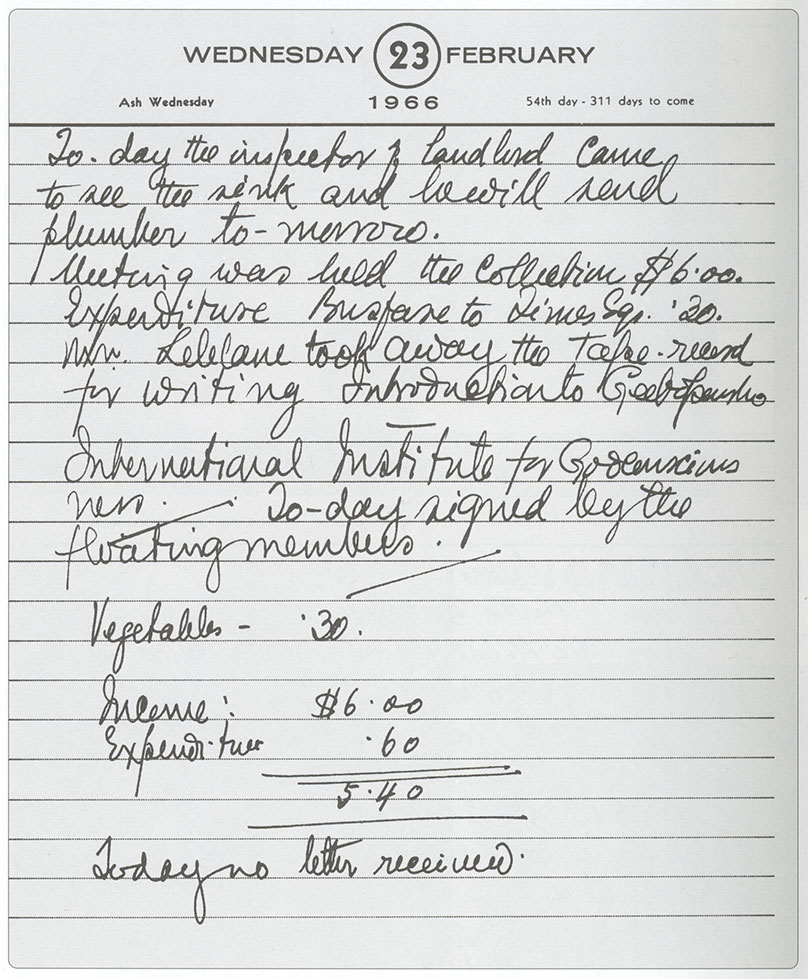 WEDNESDAY 23 FEBRUARY
Ash Wednesday 1966 54th day - 311 days to come
To-day the inspector of landlord came
to see the sink and he will send
plumber to-morrow.
Meeting was held the collection $6·00.
Expenditure Busfare to Times Sqr. ·30.
Mr. took away the Tape-record
for writing Introduction to
International Institute for Godconscious
ness. To-day signed by the
floating members.
Vegetables - ·30.
Income: $6·00
Expenditure ·60
5·40
Today no letter received.